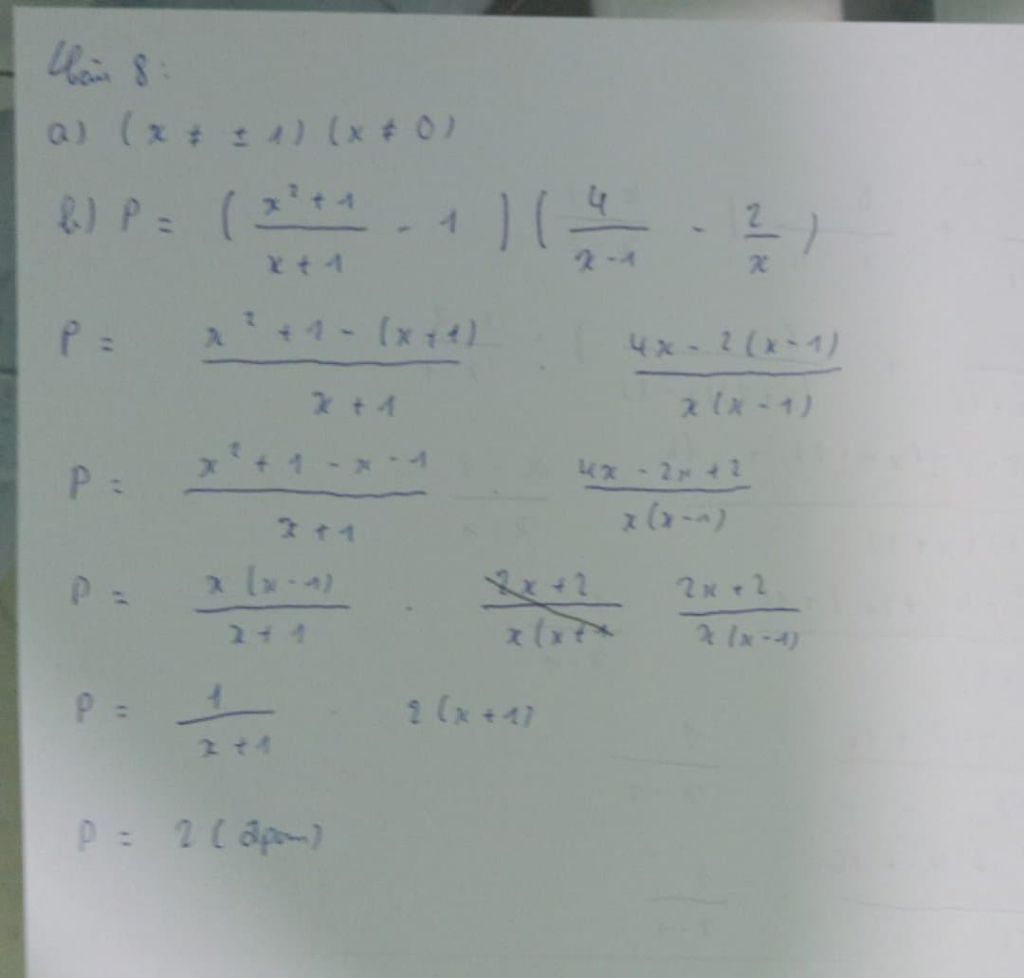 8:
a) (x ≠ ± 1) (x ≠ 0)
b) P = ( (x² + 1)/(x + 1) - 1 ) ( 4/(x - 1) - 2/x )
P = (x² + 1 - (x + 1))/(x + 1) · (4x - 2(x - 1))/(x(x - 1))
P = (x² + 1 - x - 1)/(x + 1) · (4x - 2x + 2)/(x(x - 1))
P = (x(x - 1))/(x + 1) · (2x + 2)/(x(x - 1))
P = 1/(x + 1) · 2(x + 1)
P = 2 (đpcm)